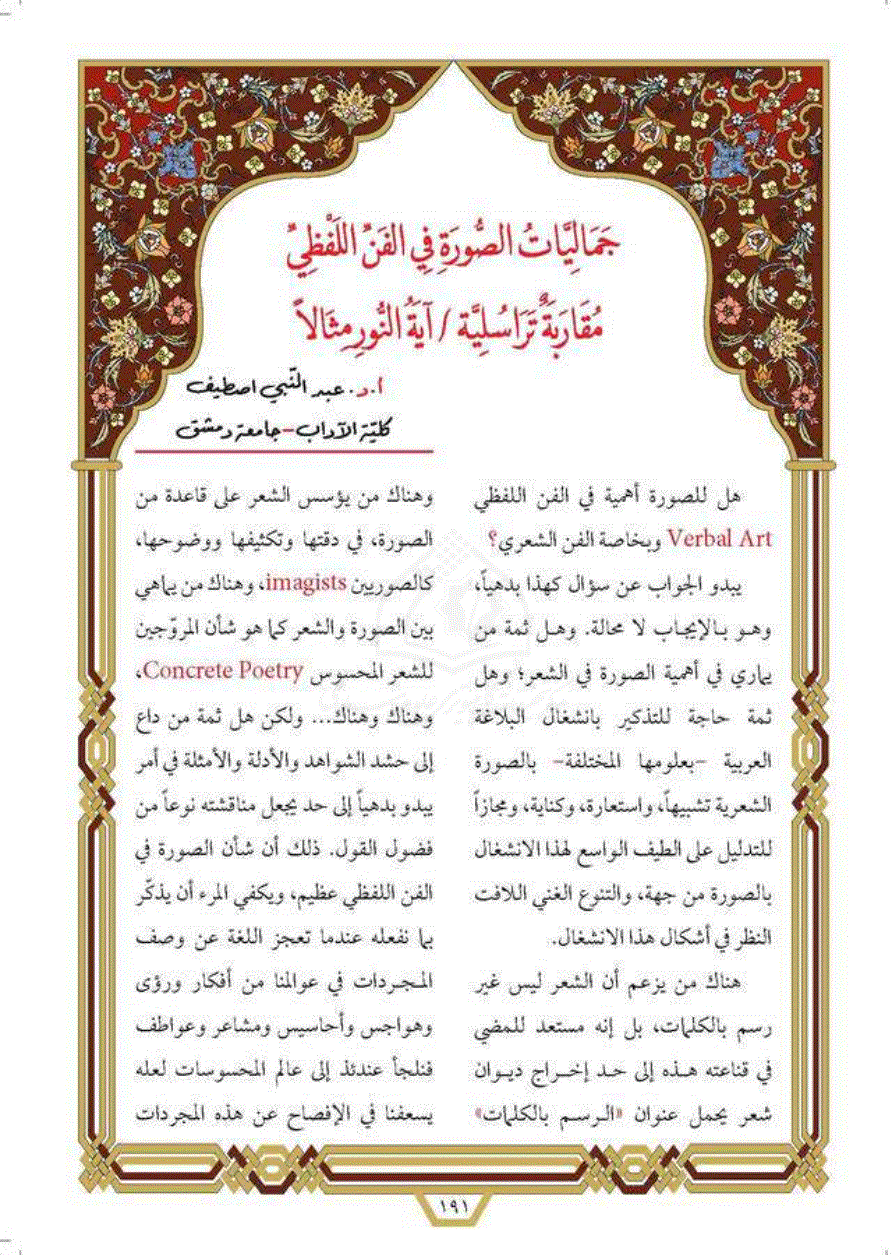 جَمَالِيَّاتُ الصُّورَةِ فِي الفَنِّ اللَّفْظِيِّ
مُقَارَبَةٌ تَرَاسُلِيَّة / آيَةُ النُّورِ مِثَالاً
أ.د. عبد النّبي اصطيف
كليّة الآداب-جامعة دمشق
هل للصورة أهمية في الفن اللفظي
Verbal Art وبخاصة الفن الشعري؟
يبدو الجواب عن سؤال كهذا بدهياً،
وهو بالإيجاب لا محالة. وهل ثمة من
يماري في أهمية الصورة في الشعر؛ وهل
ثمة حاجة للتذكير بانشغال البلاغة
العربية -بعلومها المختلفة- بالصورة
الشعرية تشبيهاً، واستعارة، وكناية، ومجازاً
للتدليل على الطيف الواسع لهذا الانشغال
بالصورة من جهة، والتنوع الغني اللافت
النظر في أشكال هذا الانشغال.
هناك من يزعم أن الشعر ليس غير
رسم بالكلمات، بل إنه مستعد للمضي
في قناعته هذه إلى حد إخراج ديوان
شعر يحمل عنوان «الرسم بالكلمات»
وهناك من يؤسس الشعر على قاعدة من
الصورة، في دقتها وتكثيفها ووضوحها،
كالصوريين imagists، وهناك من يماهي
بين الصورة والشعر كما هو شأن المروّجين
للشعر المحسوس Concrete Poetry،
وهناك وهناك... ولكن هل ثمة من داع
إلى حشد الشواهد والأدلة والأمثلة في أمر
يبدو بدهياً إلى حد يجعل مناقشته نوعاً من
فضول القول. ذلك أن شأن الصورة في
الفن اللفظي عظيم، ويكفي المرء أن يذكّر
بما نفعله عندما تعجز اللغة عن وصف
المجردات في عوالمنا من أفكار ورؤى
وهواجس وأحاسيس ومشاعر وعواطف
فنلجأ عندئذ إلى عالم المحسوسات لعله
يسعفنا في الإفصاح عن هذه المجردات
١٩١